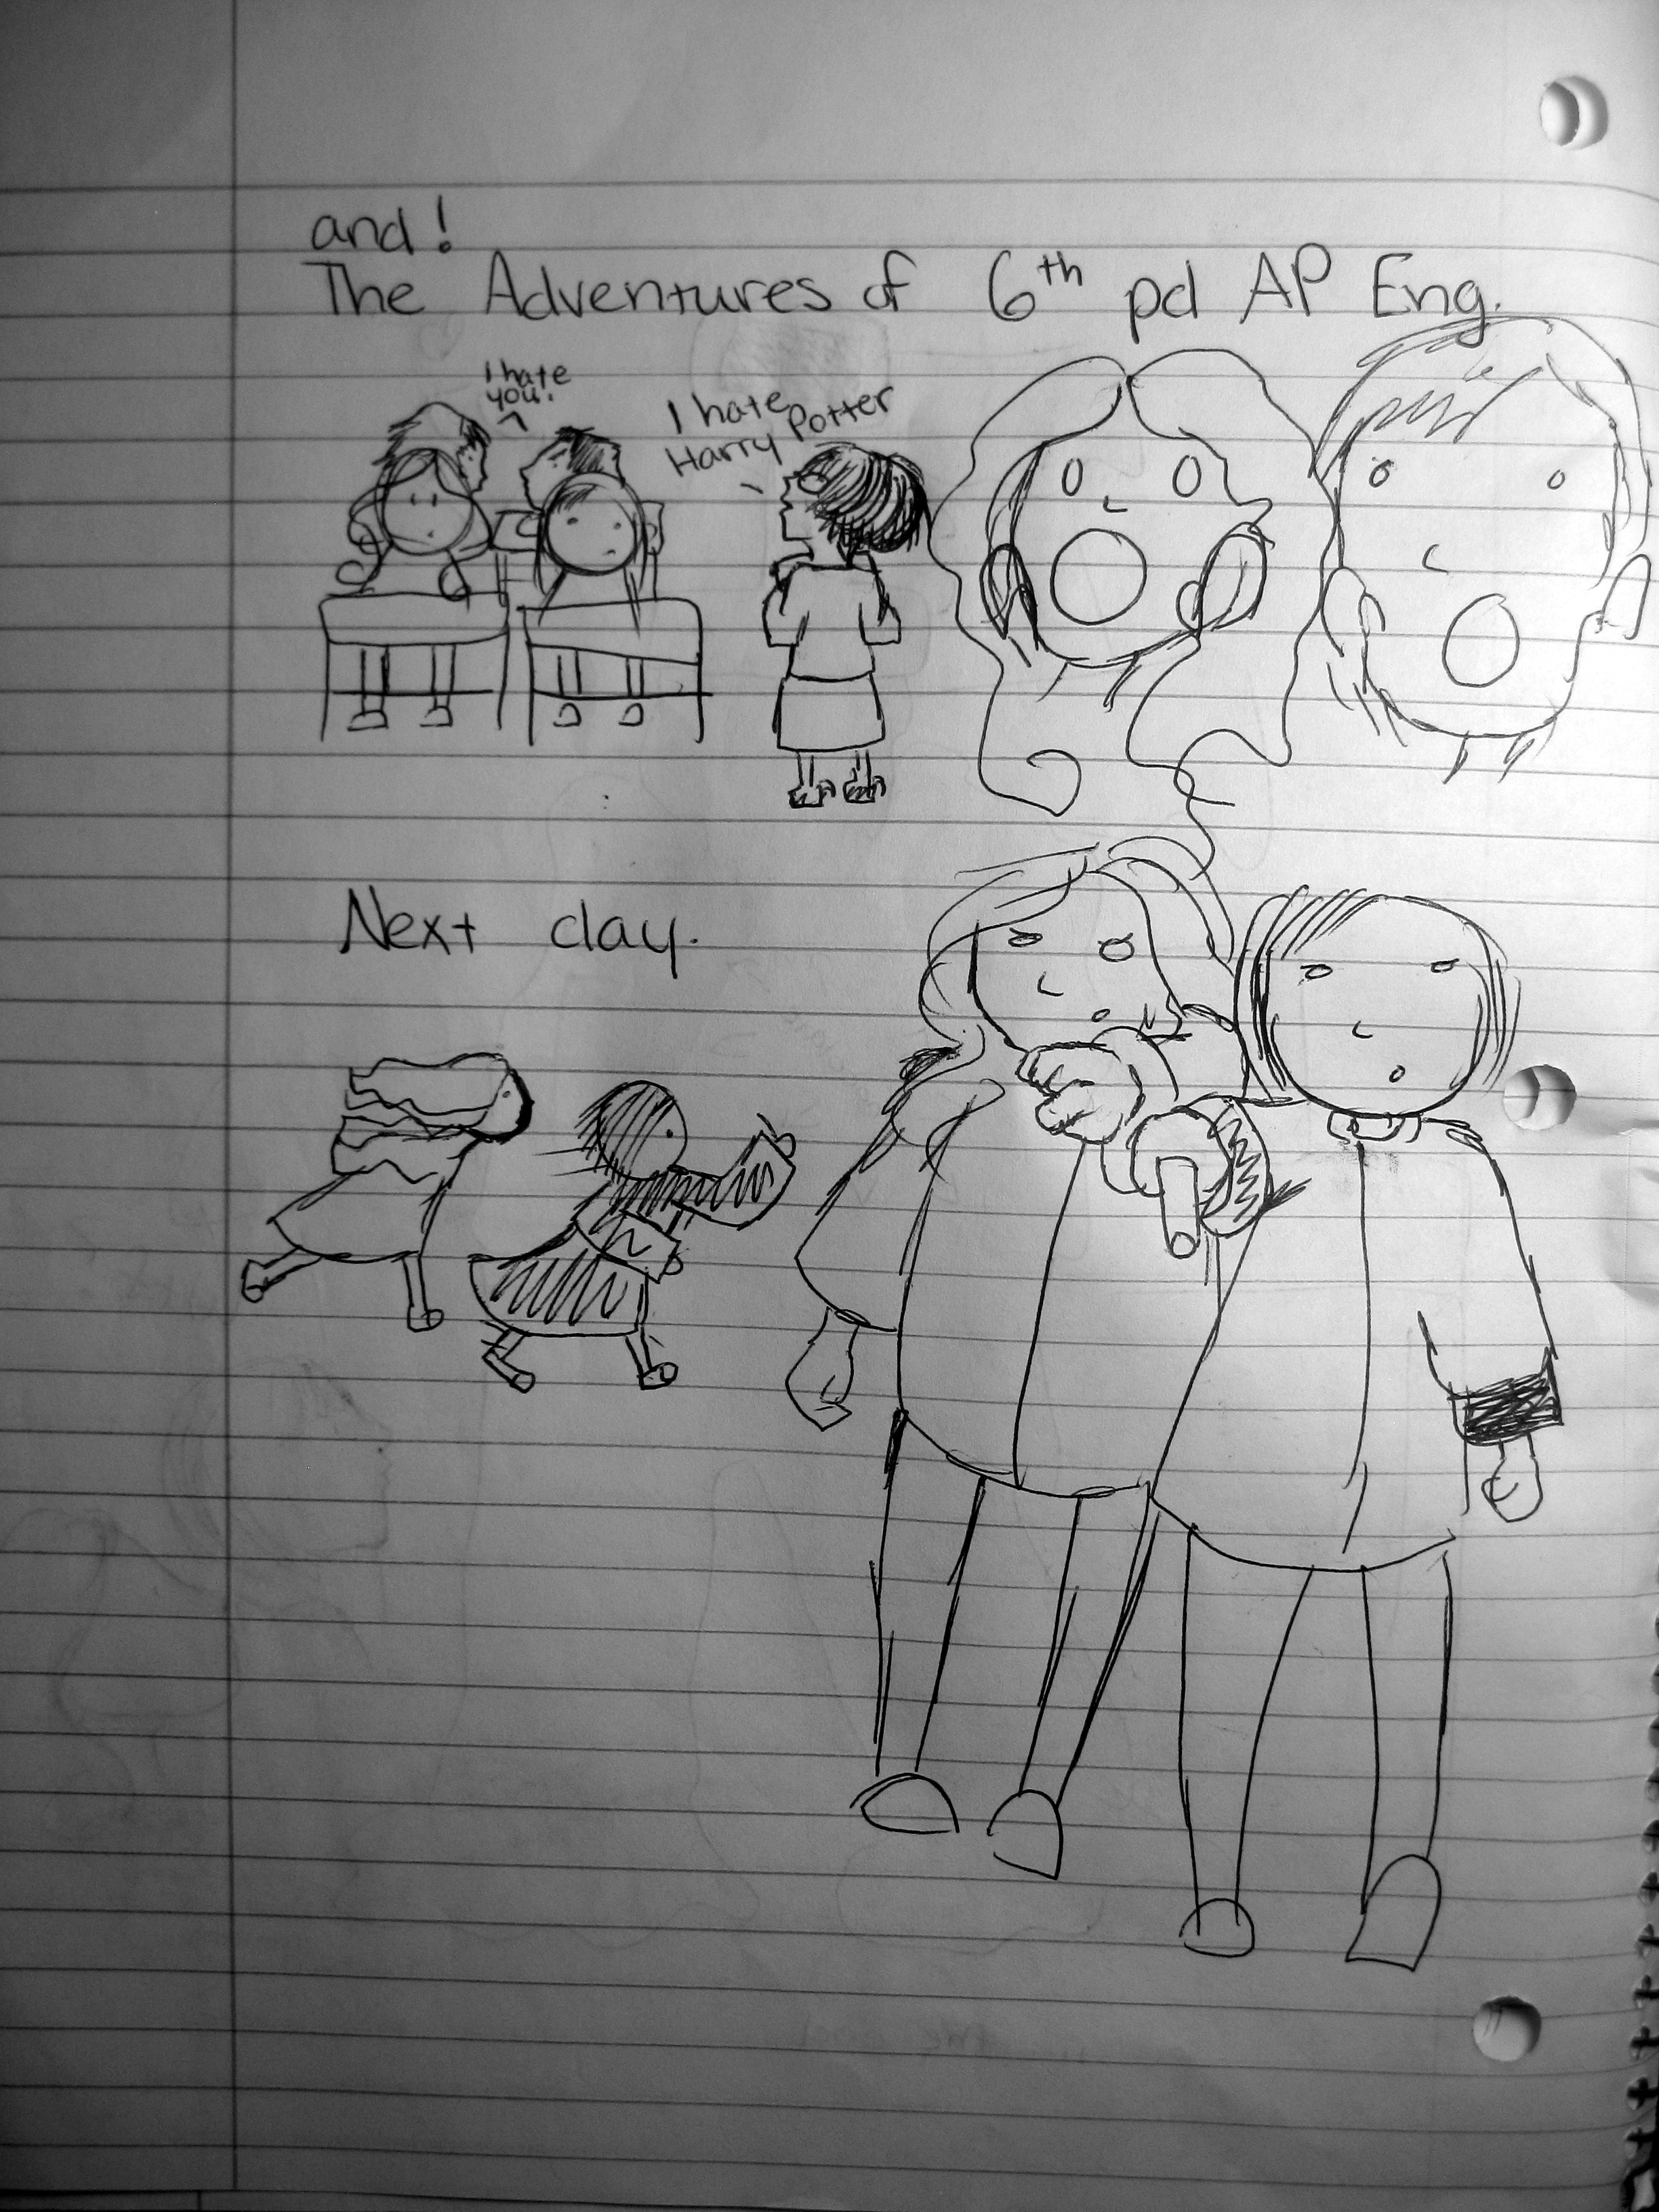 and!
The Adventures of 6th pd AP Eng.
I hate
you!
I hate
Harry Potter
Next day.